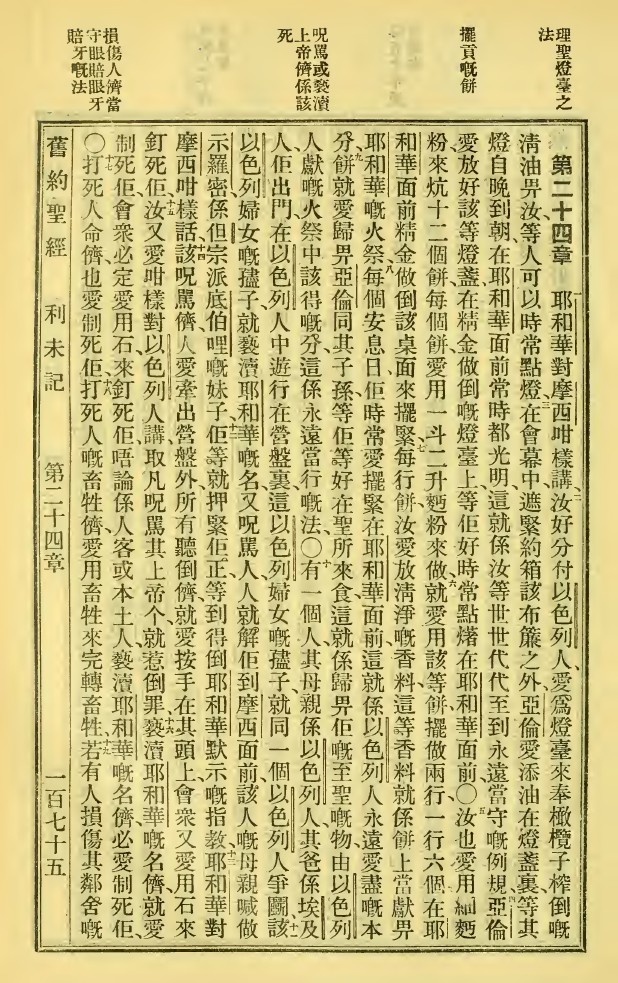 理聖燈臺之
法
擺貢嘅餅
呪罵或褻瀆
上帝儕係該
死
損傷人儕當
守眼賠眼牙
賠牙嘅法
第二十四章 耶和華對摩西咁樣講、二汝好分付以色列人、愛爲燈臺來奉橄欖子榨倒嘅
淸油畀汝等人可以時常點燈、三在會幕中遮緊約箱該布簾之外、亞倫愛添油在燈盞裏、等其
燈自晚到朝在耶和華面前常時都光明、這就係汝等世世代代至到永遠當守嘅例規、四亞倫
愛放好該等燈盞在精金做倒嘅燈臺上、等佢好時常點㷮在耶和華面前〇五汝也愛用細麪
粉來炕十二個餅、每個餅愛用一斗二升麪粉來做、六就愛用該等餅擺做兩行、一行六個、在耶
和華面前精金做倒該桌面來擺緊、七每行餅汝愛放淸淨嘅香料、這等香料就係餅上當獻畀
耶和華嘅火祭、八每個安息日佢時常愛擺緊在耶和華面前、這就係以色列人永遠愛盡嘅本
分、九餅就愛歸畀亞倫同其子孫等佢等好在聖所來食、這就係歸畀佢嘅至聖嘅物、由以色列
人獻嘅火祭中該得嘅分、這係永遠當行嘅法〇十有一個人其母親係以色列人、其爸係埃及
人、佢出門在以色列人中遊行、在營盤裏這以色列婦女嘅孻子、就同一個以色列人爭鬬、十一該
以色列婦女嘅孻子就褻瀆耶和華嘅名、又呪罵人、人就解佢到摩西面前、該人嘅母親喊做
示羅密、係但宗派底伯哩嘅妹子、十二佢等就押緊佢、正等到得倒耶和華默示嘅指敎、十三耶和華對
摩西咁樣話、十四該呪罵儕人愛牽出營盤外、所有聽倒儕就愛按手在其頭上、會衆又愛用石來
釘死佢、十五汝又愛咁樣對以色列人講、取凡呪罵其上帝个、就惹倒罪、十六褻瀆耶和華嘅名儕就愛
制死佢、會衆必定愛用石來釘死佢、唔論係人客或本土人、褻瀆耶和華嘅名儕、必愛制死佢、
〇十七打死人命儕、也愛制死佢、十八打死人嘅畜牲儕、愛用畜牲來完轉畜牲、十九若有人損傷其鄰舍嘅
舊約聖經 利未記 第二十四章 一百七十五